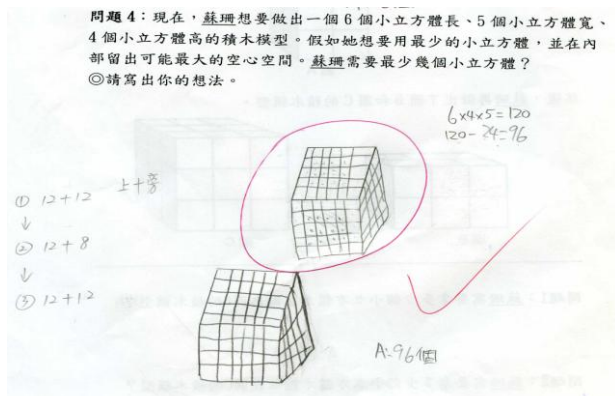 問題4：現在，蘇珊想要做出一個6個小立方體長、5個小立方體寬、
4個小立方體高的積木模型。假如她想要用最少的小立方體，並在內
部留出可能最大的空心空間。蘇珊需要最少幾個小立方體？
◎請寫出你的想法。
6×4×5=120
120-24=96
上+旁
① 12+12
↓
② 12+8
↓
③ 12+12
A:96個